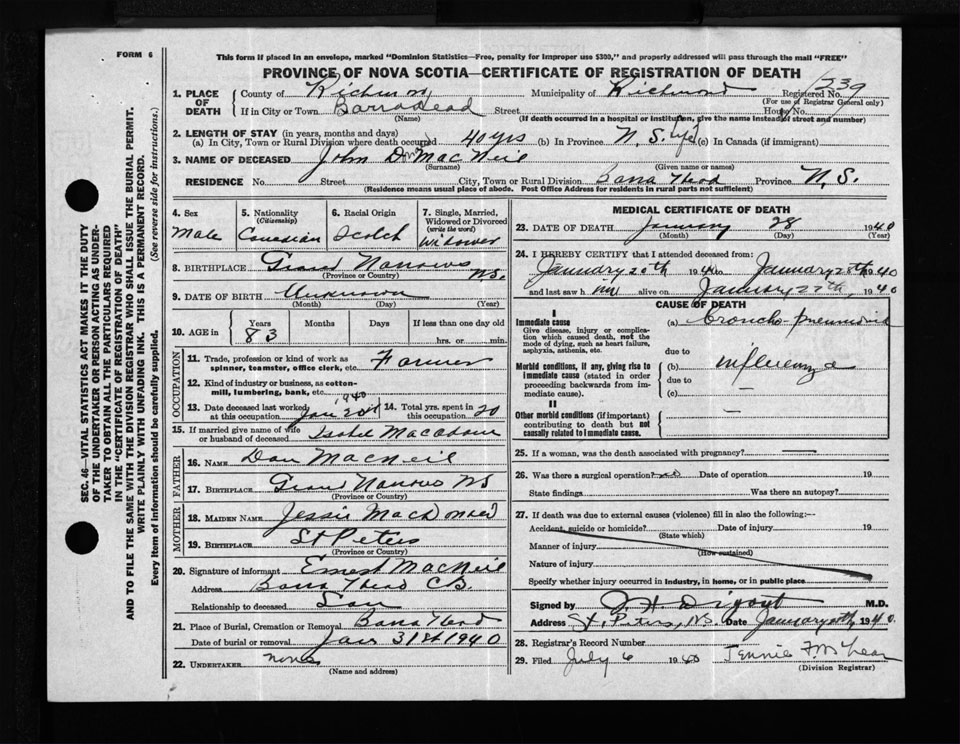 FORM 6
This form if placed in an envelope, marked "Dominion Statistics—Free, penalty for improper use $300," and properly addressed will pass through the mail "FREE"
PROVINCE OF NOVA SCOTIA—CERTIFICATE OF REGISTRATION OF DEATH
SEC. 46—VITAL STATISTICS ACT MAKES IT THE DUTY
OF THE UNDERTAKER OR PERSON ACTING AS UNDER-
TAKER TO OBTAIN ALL THE PARTICULARS REQUIRED
IN THE "CERTIFICATE OF REGISTRATION OF DEATH"
AND TO FILE THE SAME WITH THE DIVISION REGISTRAR WHO SHALL ISSUE THE BURIAL PERMIT.
WRITE PLAINLY WITH UNFADING INK. THIS IS A PERMANENT RECORD.
Every item of information should be carefully supplied. (See reverse side for instructions.)
1. PLACE OF DEATH
County of Richmond Municipality of Richmond Registered No. 1539
(For use of Registrar General only)
If in City or Town Barra Head Street House No.
(Name) (If death occurred in a hospital or institution, give the name instead of street and number)
2. LENGTH OF STAY (in years, months and days)
(a) In City, Town or Rural Division where death occurred 40 yrs (b) In Province N. S. Life (c) In Canada (if immigrant)
3. NAME OF DECEASED John Dan MacNeil
(Surname) (Given name or names)
RESIDENCE No. Street City, Town or Rural Division Barra Head Province N. S.
(Residence means usual place of abode. Post Office Address for residents in rural parts not sufficient)
4. Sex
Male
5. Nationality
(Citizenship)
Canadian
6. Racial Origin
Scotch
7. Single, Married,
Widowed or Divorced
(write the word)
Widower
8. BIRTHPLACE Grand Narrows N.S.
(Province or Country)
9. DATE OF BIRTH Unknown
(Month) (Day) (Year)
10. AGE in
Years Months Days If less than one day old
83 hrs. or min.
OCCUPATION
11. Trade, profession or kind of work as
spinner, teamster, office clerk, etc. Farmer
12. Kind of industry or business, as cotton-
mill, lumbering, bank, etc.
13. Date deceased last worked
at this occupation Jan 20th 1940
14. Total yrs. spent in
this occupation 20
15. If married give name of wife
or husband of deceased Isabel MacAdam
FATHER
16. Name Dan MacNeil
17. Birthplace Grand Narrows NS
(Province or Country)
MOTHER
18. Maiden Name Jessie MacDonald
19. Birthplace St Peters
(Province or Country)
20. Signature of informant Ernest MacNeil
Address Barra Head CB
Relationship to deceased Son
21. Place of Burial, Cremation or Removal Barra Head
Date of burial or removal Jan 31st 1940
22. UNDERTAKER none
(Name and address)
MEDICAL CERTIFICATE OF DEATH
23. DATE OF DEATH January 28 1940
(Month) (Day) (Year)
24. I HEREBY CERTIFY that I attended deceased from:
January 20th 1940 to January 28th 1940
and last saw him alive on January 27th, 1940
CAUSE OF DEATH
I
Immediate cause
Give disease, injury or complica-
tion which caused death, not the
mode of dying, such as heart failure,
asphyxia, asthenia, etc.
(a) Broncho-pneumonia
due to
Morbid conditions, if any, giving rise to
immediate cause (stated in order
proceeding backwards from im-
mediate cause).
(b) influenza
due to
(c) —
II
Other morbid conditions (if important)
contributing to death but not
causally related to immediate cause.
—
25. If a woman, was the death associated with pregnancy? —
26. Was there a surgical operation? no Date of operation 19
State findings Was there an autopsy?
27. If death was due to external causes (violence) fill in also the following:—
Accident, suicide or homicide? Date of injury 19
(State which)
Manner of injury
(How sustained)
Nature of injury
Specify whether injury occurred in industry, in home, or in public place
Signed by Digout M.D.
Address St. Peters, N.S. Date January 1940
28. Registrar's Record Number
29. Filed July 6 1940 Jennie F. McLean
(Division Registrar)